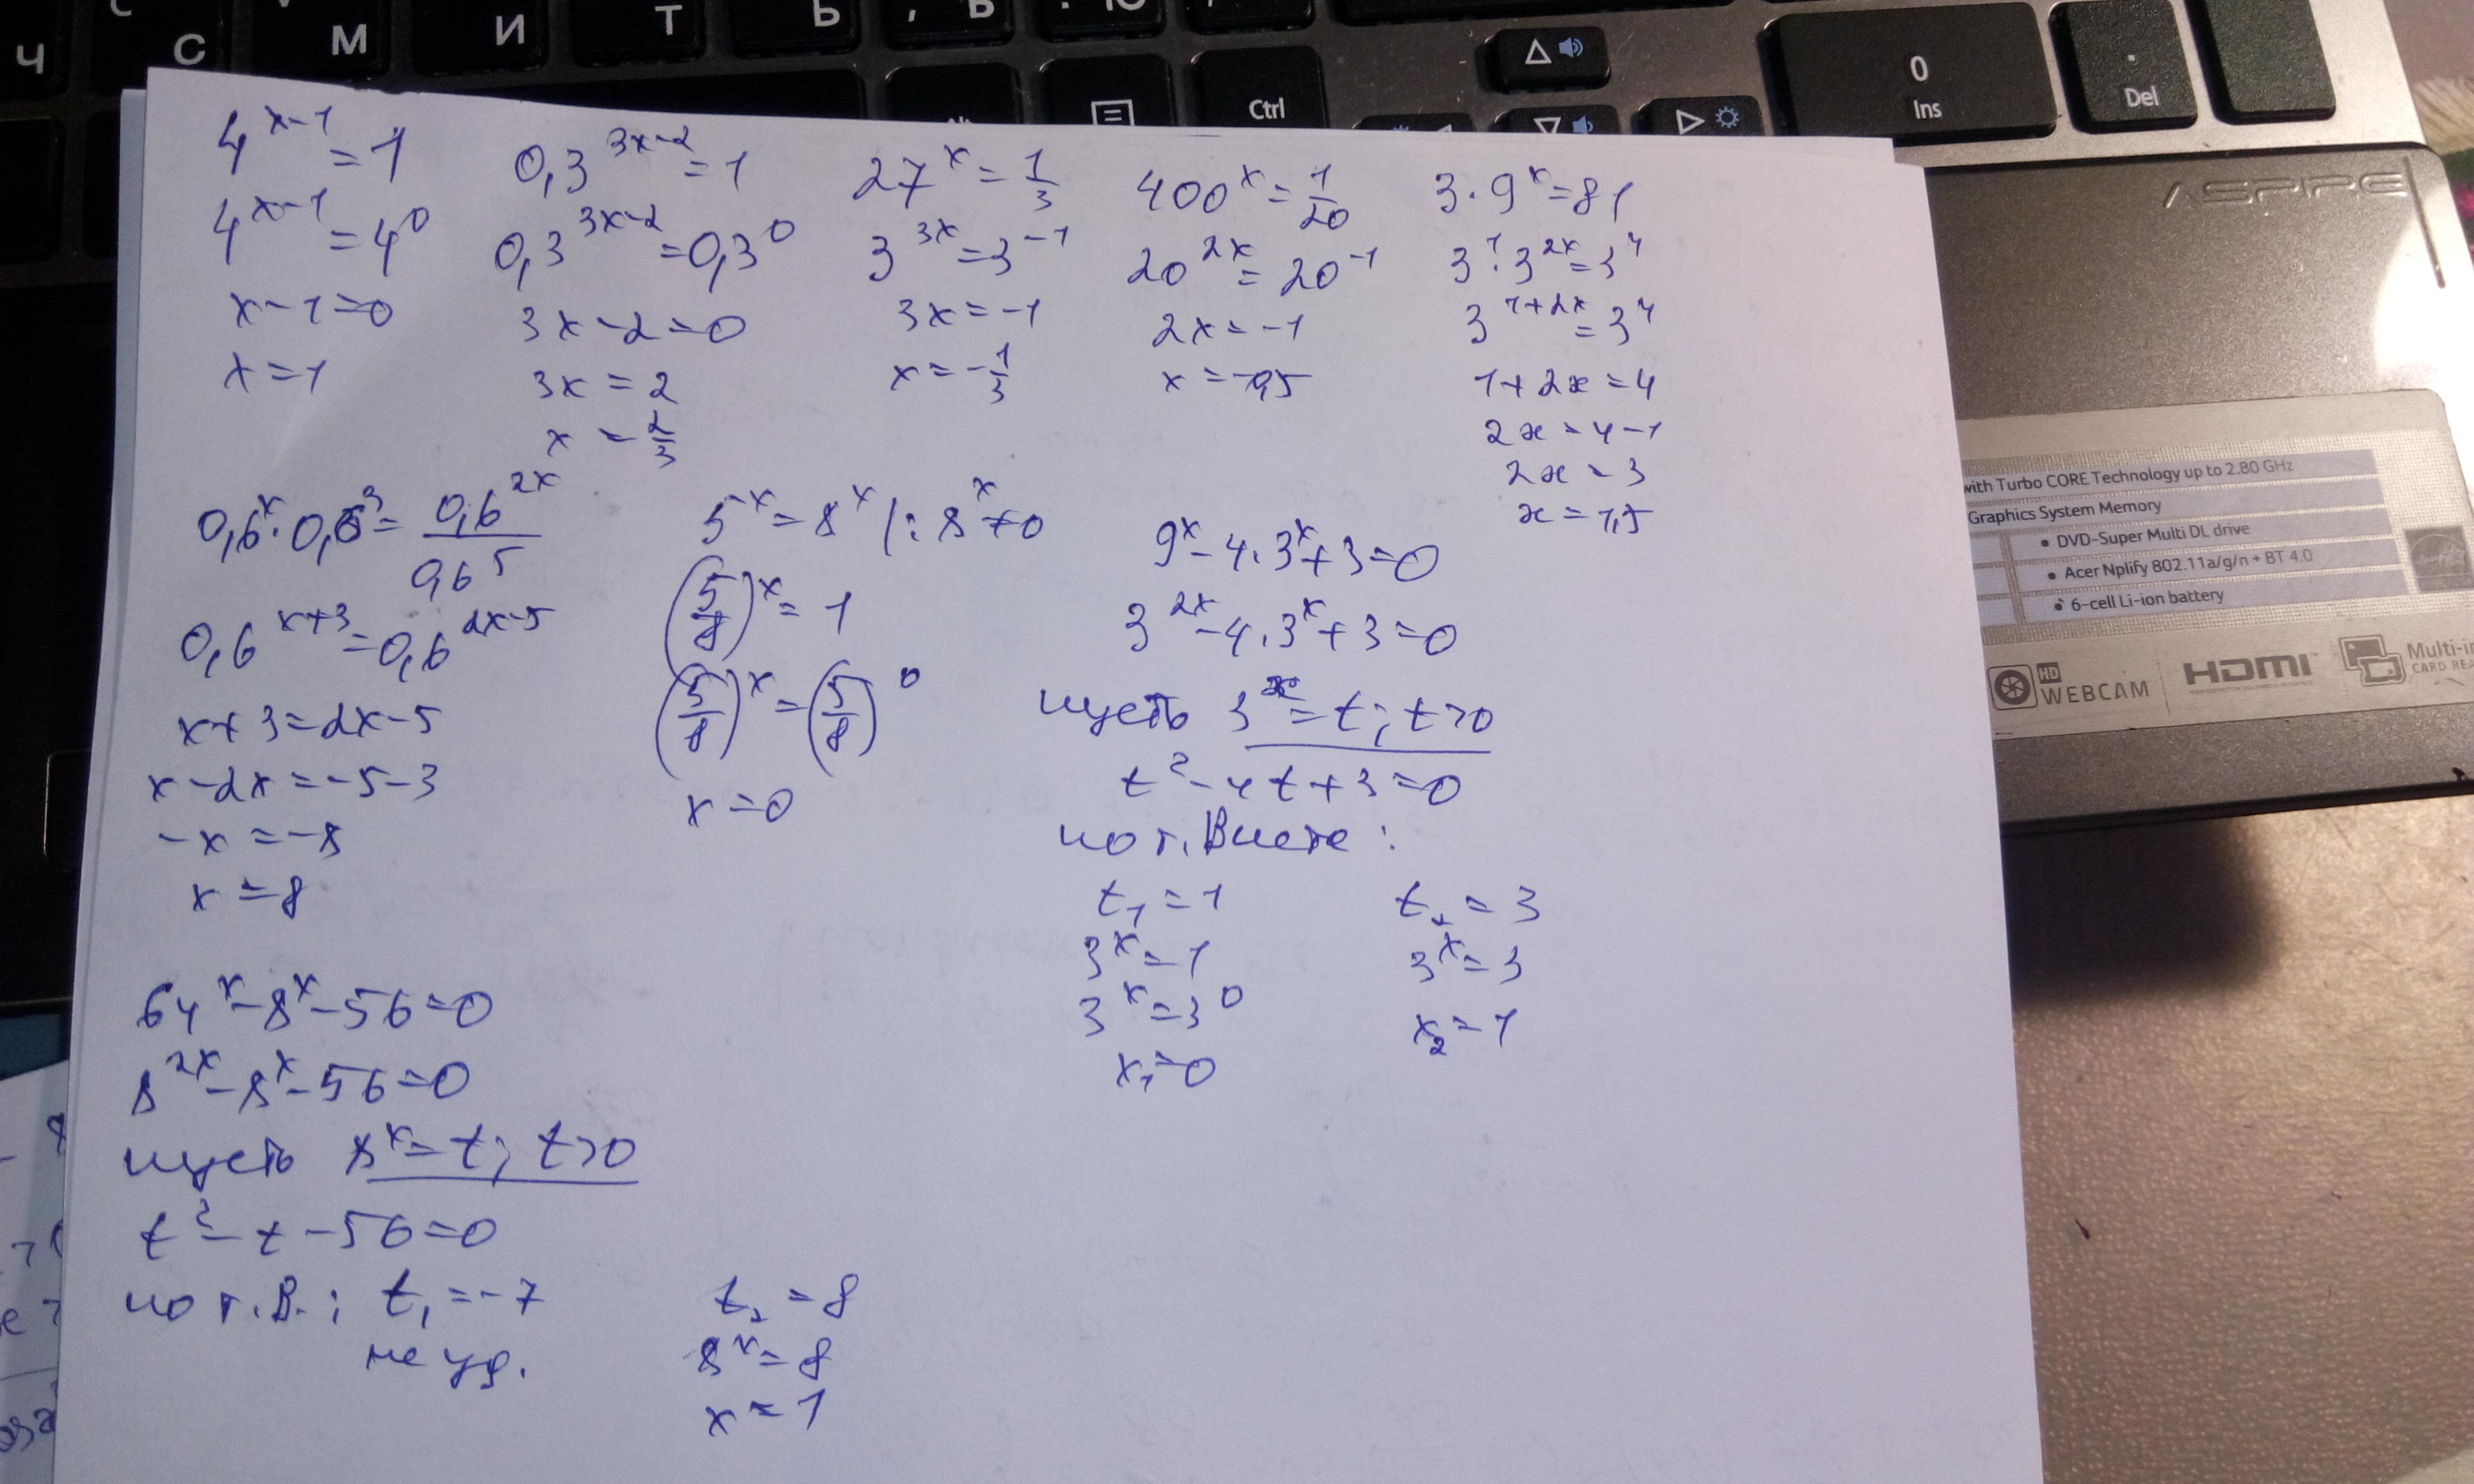 Ч С М И Т Ь , Ю .
Ctrl
0
Ins
.
Del
ASPIRE
4^{x-1} = 1
4^{x-1} = 4^0
x-1=0
x=1
0,3^{3x-2} = 1
0,3^{3x-2} = 0,3^0
3x-2=0
3x=2
x=\frac{2}{3}
27^x = \frac{1}{3}
3^{3x} = 3^{-1}
3x=-1
x=-\frac{1}{3}
400^x = \frac{1}{20}
20^{2x} = 20^{-1}
2x=-1
x=-0,5
3·9^x=81
3^1·3^{2x}=3^4
3^{1+2x}=3^4
1+2x=4
2x=4-1
2x=3
x=1,5
0,6^x·0,6^3=\frac{0,6^{2x}}{0,6^5}
0,6^{x+3}=0,6^{2x-5}
x+3=2x-5
x-2x=-5-3
-x=-8
x=8
5^x=8^x |:8^x≠0
(\frac{5}{8})^x=1
(\frac{5}{8})^x=(\frac{5}{8})^0
x=0
9^x-4·3^x+3=0
3^{2x}-4·3^x+3=0
пусть 3^x=t; t>0
t^2-4t+3=0
по т. Виета:
t_1=1
3^x=1
3^x=3^0
x_1=0
t_2=3
3^x=3
x_2=1
64^x-8^x-56=0
8^{2x}-8^x-56=0
пусть 8^x=t; t>0
t^2-t-56=0
по т.В.: t_1=-7
не уд.
t_2=8
8^x=8
x=1
with Turbo CORE Technology up to 2.80 GHz
Graphics System Memory
• DVD-Super Multi DL drive
• Acer Nplify 802.11a/g/n + BT 4.0
• 6-cell Li-ion battery
HD
WEBCAM
HDMI
Multi-in
CARD REA